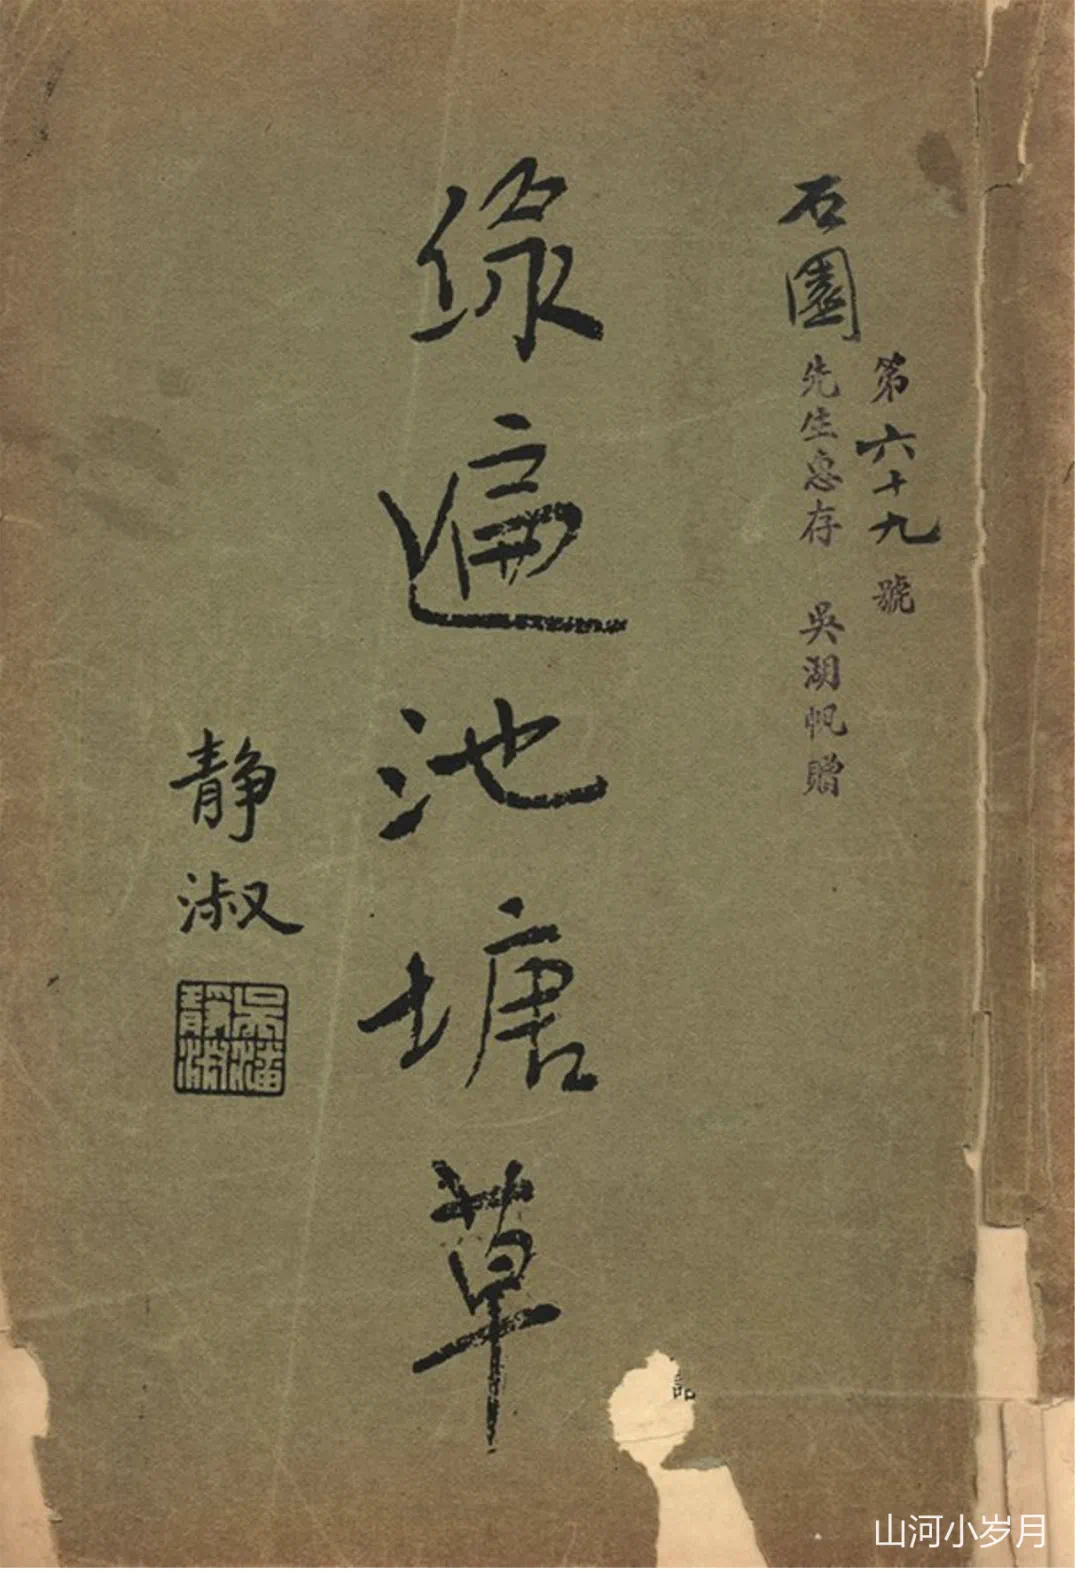 第六十九號
石園先生惠存 吳湖帆贈
綠遍池塘草
靜淑
吳潘靜淑
山河小岁月